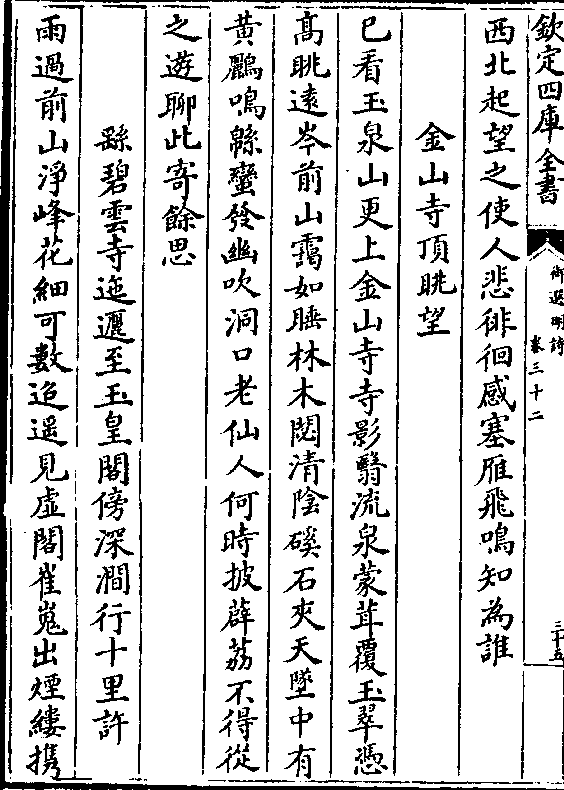 欽定四庫全書
御選明詩 卷三十二
三十五
西北起望之使人悲徘徊感塞雁飛鳴知為誰
金山寺頂眺望
已看玉泉山更上金山寺寺影翳流泉蒙茸覆玉翠憑
髙眺遠岑前山靄如睡林木閟清陰磎石夾天墜中有
黄鸝鳴緜蠻發幽吹洞口老仙人何時披薜荔不得從
之遊聊此寄餘思
繇碧雲寺迤邐至玉皇閣傍深澗行十里許
雨過前山淨峰花細可數迢遥見虛閣崔嵬出煙縷攜